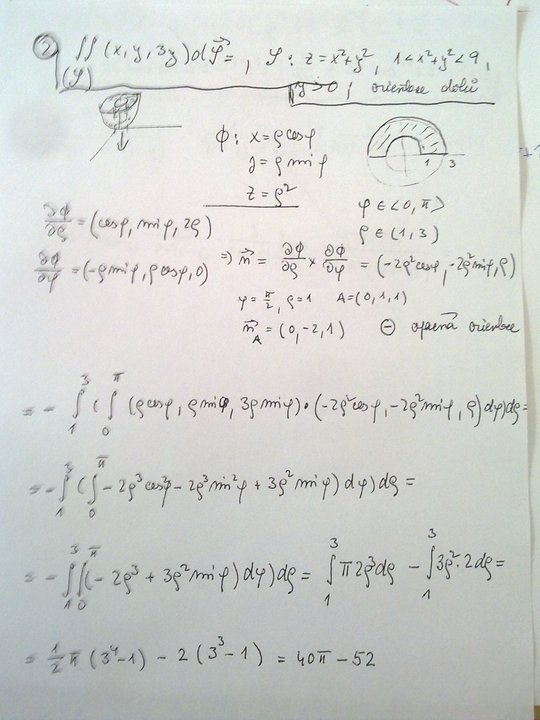 ② ∬(x, y, 3y) dS⃗ =, S: z = x²+y², 1 < x²+y² < 9,
(S) y > 0, orientace dolů
ϕ: x = ρcosφ
y = ρ sinφ
z = ρ²
1 3
∂ϕ/∂ρ = (cosφ, sinφ, 2ρ) φ ∈ <0, π>
ρ ∈ (1, 3)
∂ϕ/∂φ = (-ρ sinφ, ρcosφ, 0) ⇒ n⃗ = ∂ϕ/∂ρ × ∂ϕ/∂φ = (-2ρ²cosφ, -2ρ²sinφ, ρ)
φ = π/2, ρ = 1 A = (0, 1, 1)
n⃗_A = (0, -2, 1) ⊖ opačná orientace
= - ∫₁³ (∫₀^π (ρcosφ, ρ sinφ, 3ρ sinφ) • (-2ρ²cosφ, -2ρ²sinφ, ρ) dφ) dρ =
= - ∫₁³ (∫₀^π - 2ρ³cos²φ - 2ρ³sin²φ + 3ρ² sinφ) dφ) dρ =
= - ∫₁³ ∫₀^π (- 2ρ³ + 3ρ² sinφ) dφ) dρ = ∫₁³ π 2ρ³dρ - ∫₁³ 3ρ²·2dρ =
= 1/2 π (3⁴-1) - 2 (3³-1) = 40π - 52